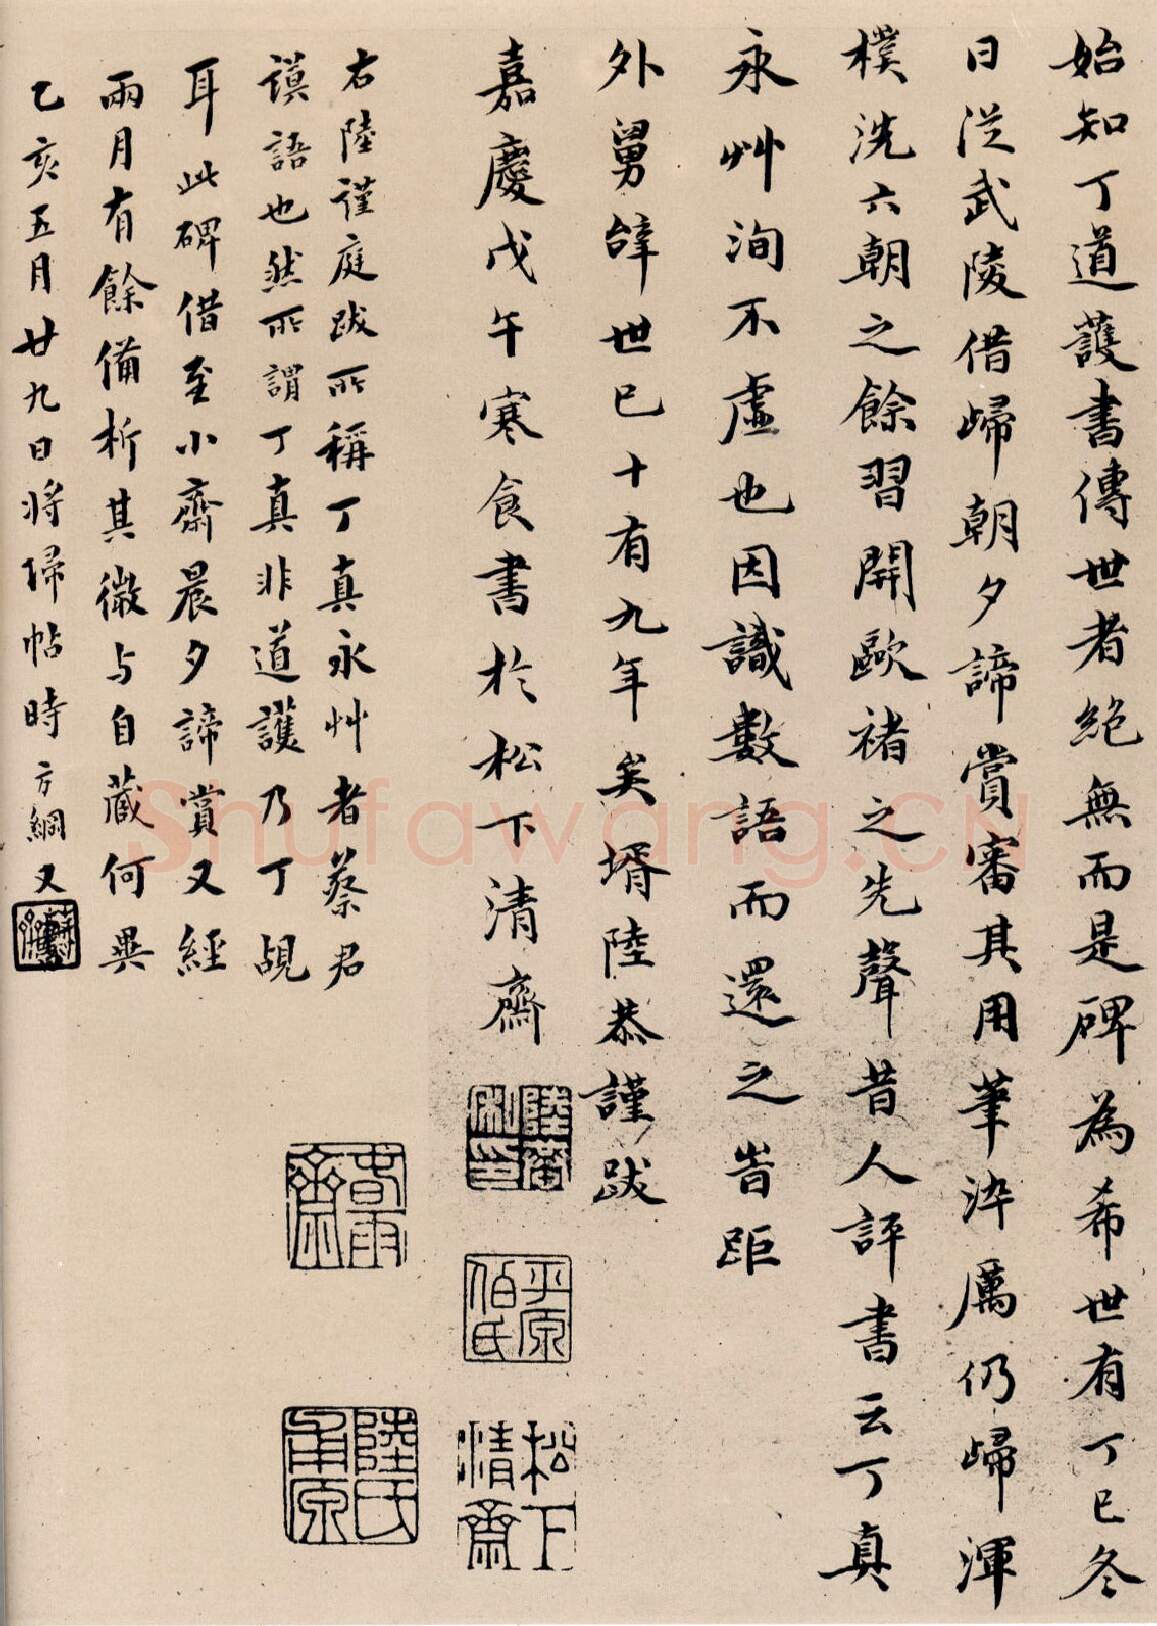 始知丁道護書傳世者絕無而是碑為希世有丁巳冬
日從武陵借歸朝夕諦賞審其用筆淬厲仍歸渾
樸洗六朝之餘習開歐褚之先聲昔人評書云丁真
永艸洵不虛也因識數語而還之旹距
外舅辭世已十有九年矣壻陸恭謹跋
嘉慶戊午寒食書於松下清齋
右陸謹庭跋所稱丁真永艸者蔡君
謨語也然所謂丁真非道護乃丁覘
耳此碑借至小齋晨夕諦賞又經
兩月有餘備析其微与自藏何異
乙亥五月廿九日將歸帖時方綱又
陸恭私印
平原伯氏
松下清齋
春雨齋
陸氏甫原
shufawang.cn